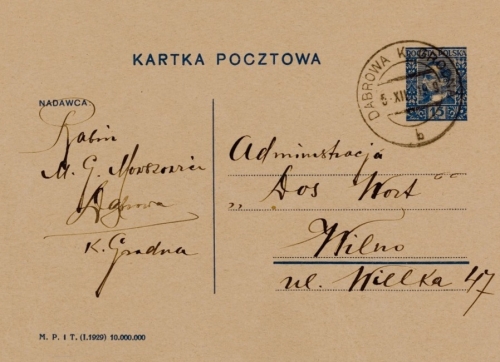 KARTKA POCZTOWA
POCZTA POLSKA
15
DĄBROWA K. GRODNA
5 XII
b
NADAWCA
Rabin
M. G. Movszovic
Dąbrowa
K. Grodna
Administracja
„Dos Wort"
Wilno
ul. Wielka 47
M. P. i T. (I.1929) 10.000.000